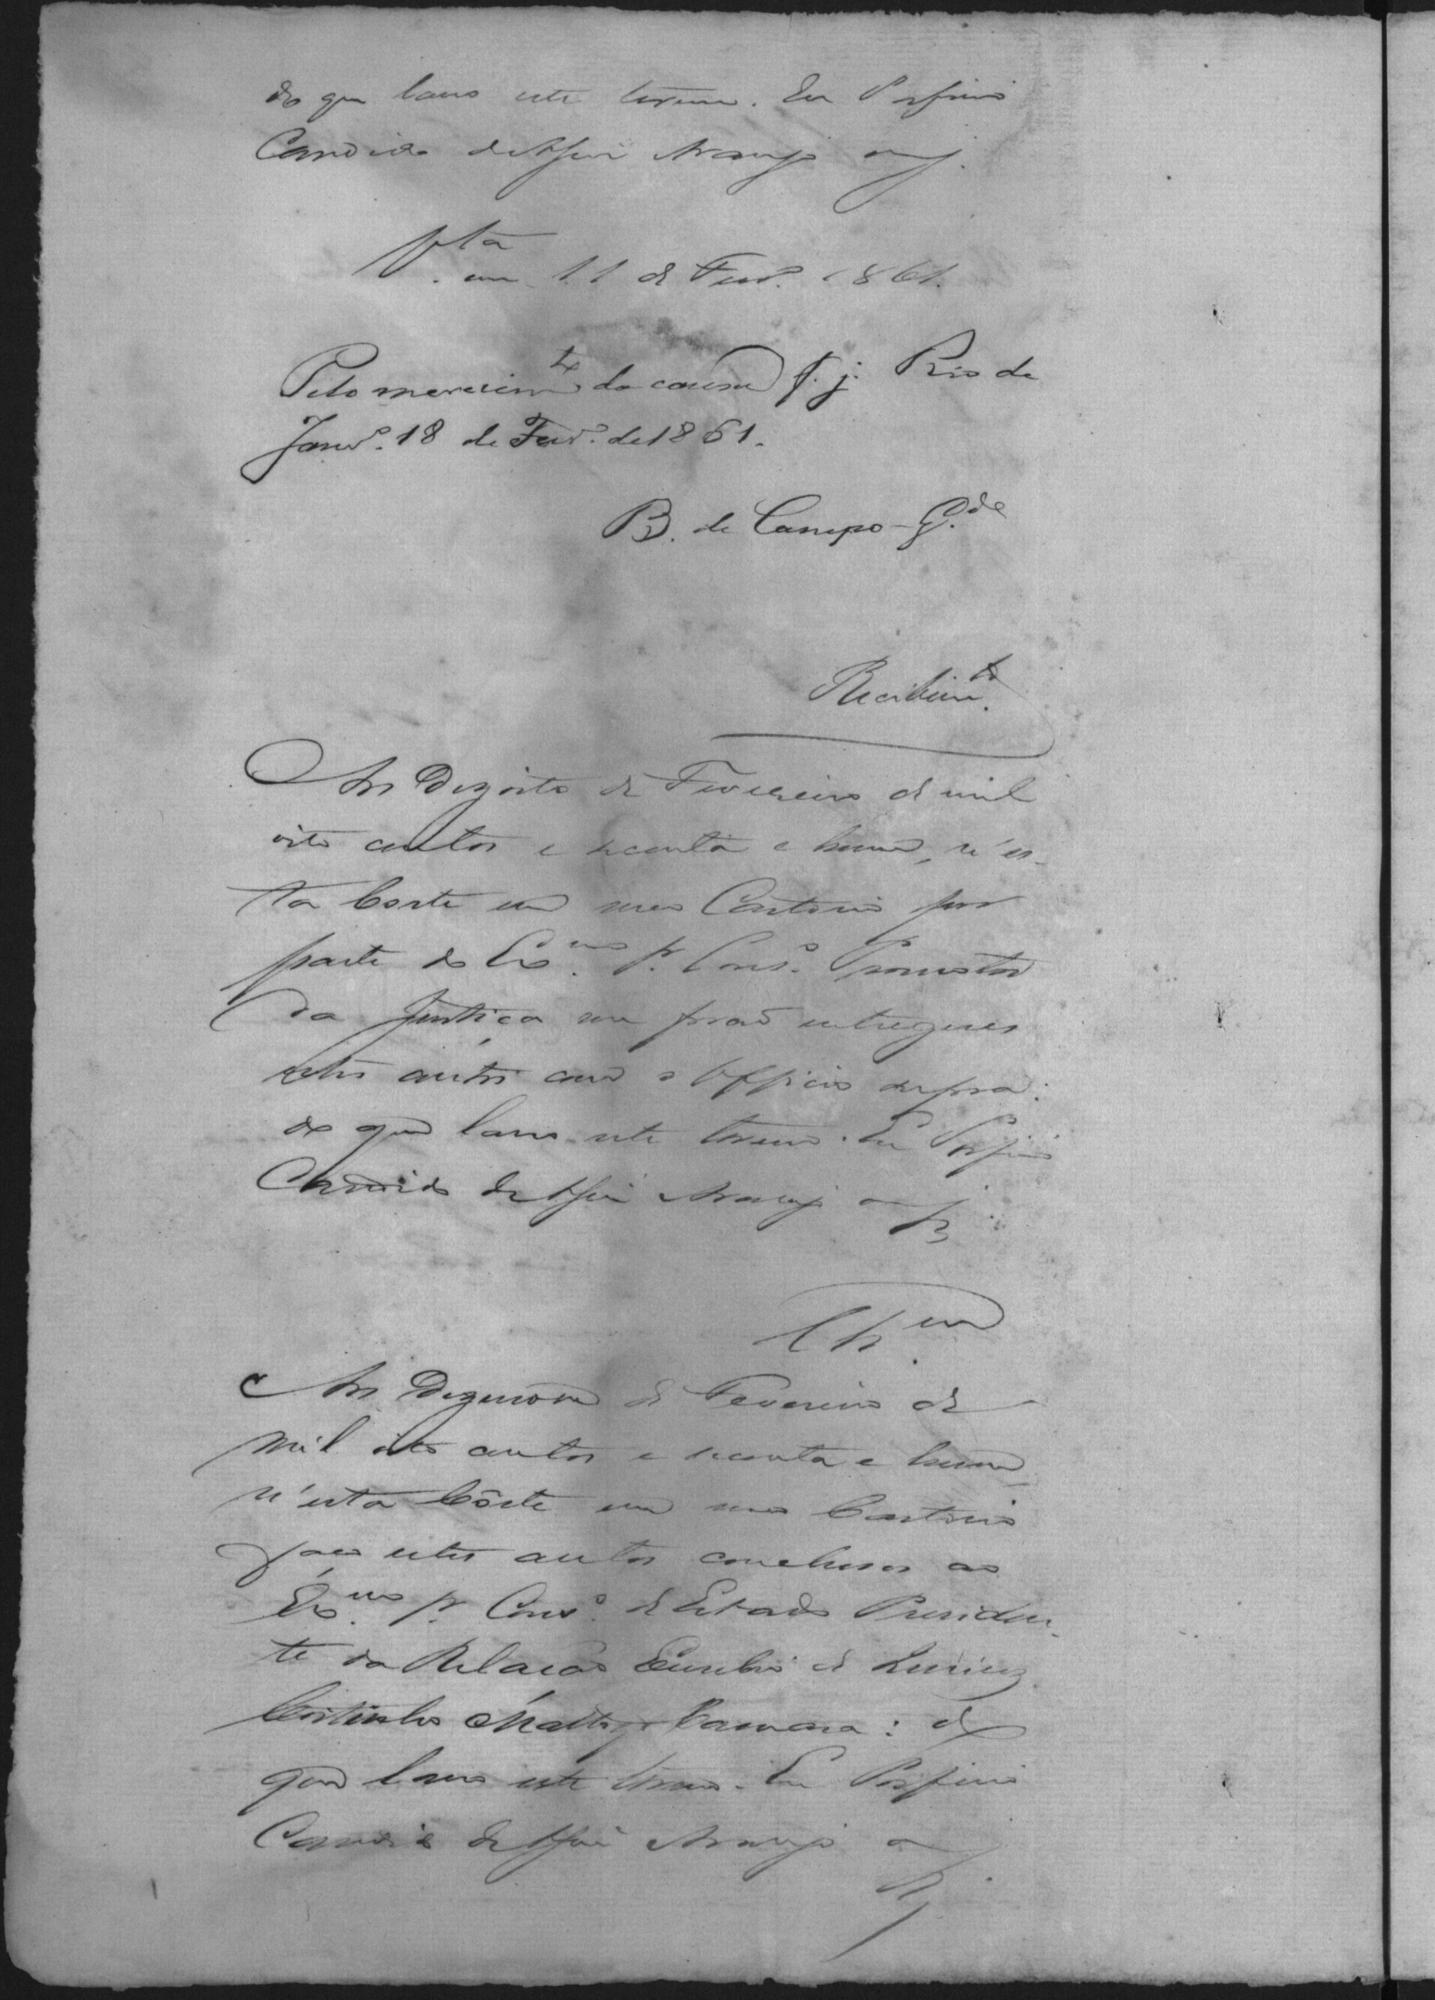 do que lavro este termo. Eu Porfirio
Candido de Assis Araujo o
Vta
em 11 de Fevº. 1861.
Pelo merecimto da causa f. j. Rio de
Janrº. 18 de Fevº. de 1861.
B. de Campo-Gde
Recebimto
Aos Dezoito de Fevereiro de mil
oito centos e secenta e hum, n'es-
ta Corte em meu Cartorio por
parte do Exmo Sr. Consº. Promotor
da Justiça me forão entregues
estes autos com o Officio supra:
do que lavro este termo. Eu Porfirio
Candido de Assis Araujo o
Chm
Aos Dezenove de Fevereiro de
mil oito centos e secenta e hum,
n'esta Côrte em meu Cartorio
faço estes autos conclusos ao
Exmo Sr. Consº. d'Estado Presiden-
te da Relação Euzebio de Queiroz
Coutinho Mattozo Camara: do
que lavro este termo. Eu Porfirio
Candido de Assis Araujo o